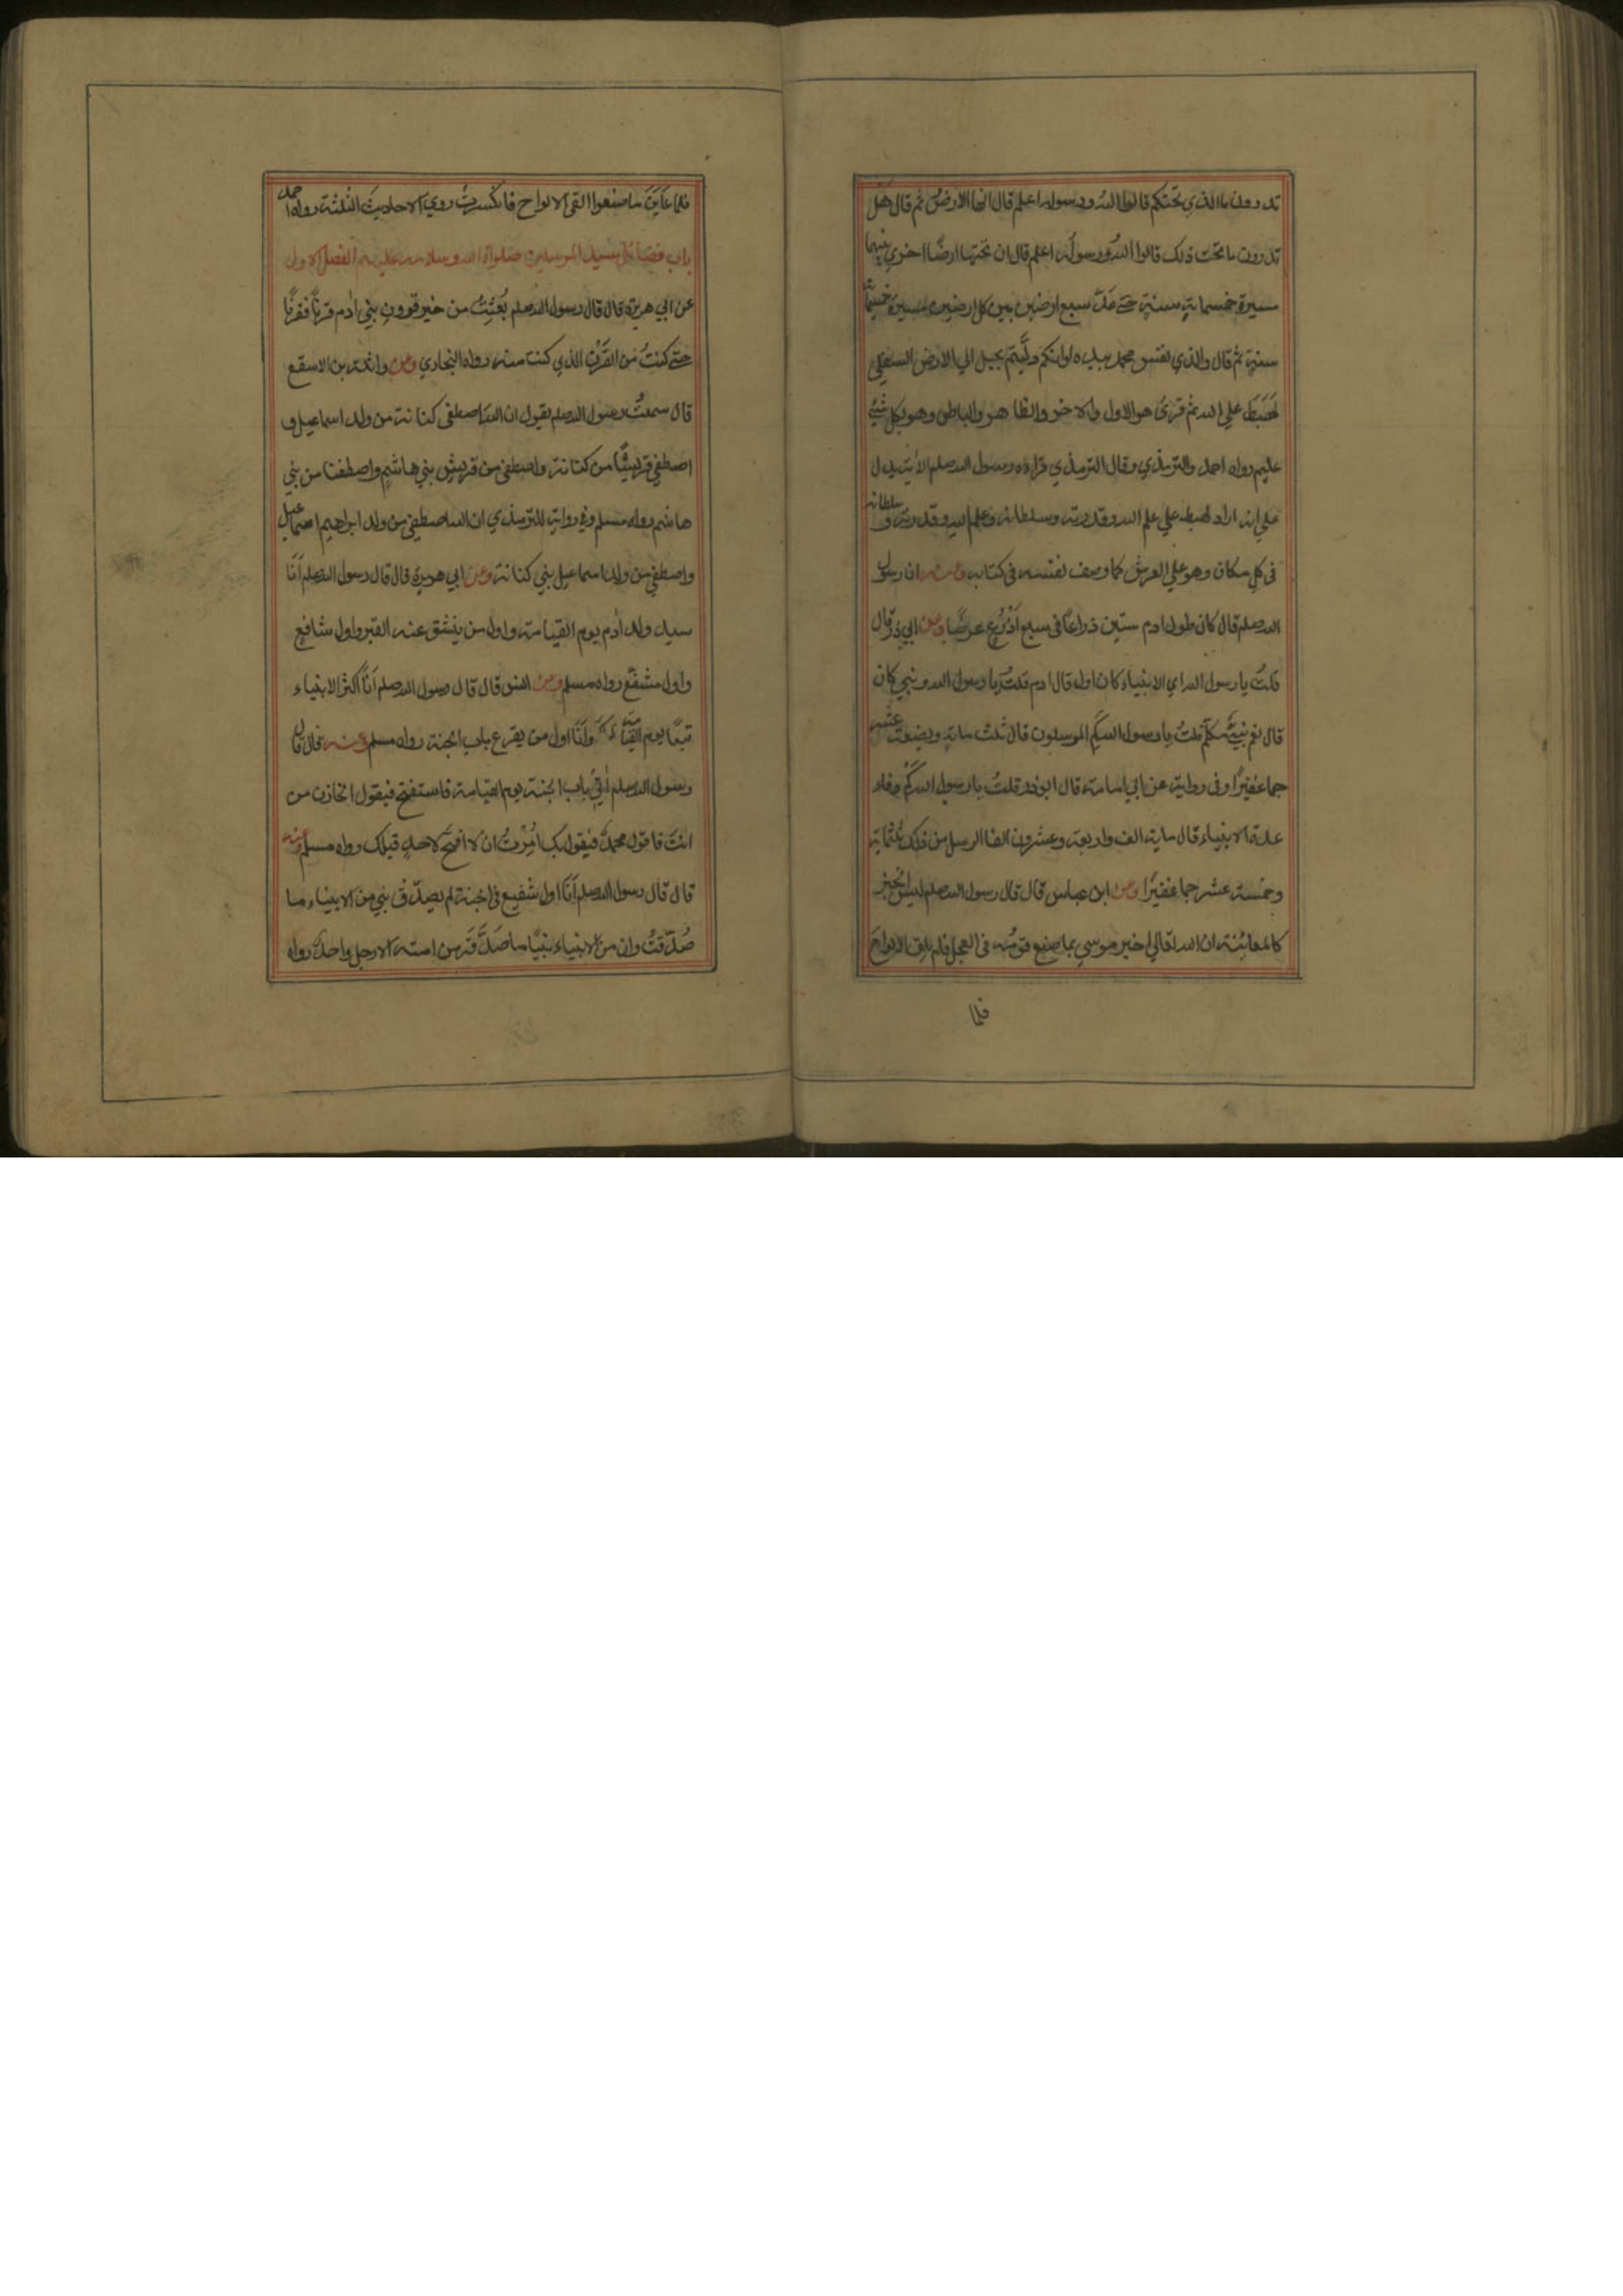 تدرون ما الذي تحتكم قالوا الله ورسوله اعلم قال انها الارض ثم قال هل
تدرون ما تحت ذلك قالوا الله ورسوله اعلم قال ان تحتها ارضًا اخري بينهما
مسيرة خمسماية سنة حتے عدّ سبع ارضين بين كل ارضين مسيرة خمسماية
سنة ثم قال والذي نفس محمد بيده لوانكم دلّيتم بحبل الي الارض السفلي
لهَبَطَ علي الله ثم قرئ هو الاول والاخر والظاهر والباطن وهو بكل شيئ
عليم رواه احمد والترمذي وقال الترمذي قراءه رسول الله صلعم الاية يدل
علي انه اراد لهبط علي علم الله وقدرته وسلطانه وعلم الله وقدرته وسلطانه
في كل مكان وهو علي العرش كما وصف نفسه في كتابه وعنه ان رسول
الله صلعم قال كان طول ادم ستين ذراعًا في سبع اذرُعٍ عرضًا وعن ابي ذر قال
قلتُ يا رسول الله اي الانبياء كان اول قال ادم قلتُ يا رسول الله ونبي كان
قال نعم نبيٌّ مكلَّم قلتُ يا رسول الله كم المرسلون قال ثلث ماية وبضعة عشر
جما غفيرًا وفي رواية عن ابي امامة قال ابوذر قلتُ يا رسول الله كم وفاء
عدة الانبياء قال ماية الف واربعة وعشرون الفا الرسل من ذلك ثلثماية
وخمسة عشر جما غفيرًا وعن ابن عباس قال قال رسول الله صلعم ليس الخبر
كالمعاينة ان الله تعالي اخبر موسي بما صنع قومُه في العجل فلم يلق الالواح
فلما
فلما عايَنَ ما صنعوا القى الالواح فانكسرت روي الاحاديث الثلثة رواه احمد
باب فضائل سيد المرسلين صلوات الله وسلامه عليهم الفصل الاول
عن ابي هريرة قال قال رسول الله صلعم بُعثِتُ من خير قرون بني ادم قرنًا فقرنًا
حتے كنتُ من القَرْن الذي كنت منه رواه البخاري وعن واثلة بن الاسقع
قال سمعتُ رسول الله صلعم يقول ان الله اصطفى كنانة من ولد اسماعيل و
اصطفي قريشًا من كنانة واصطفى من قريش بني هاشم واصطفنا من بني
هاشم رواه مسلم وفي رواية للترمذي ان الله اصطفي من ولد ابراهيم اسماعيل
واصطفي من ولد اسماعيل بني كنانة وعن ابي هريرة قال قال رسول الله صلعم اَنَا
سيد ولد اٰدم يوم القيامة واول من ينشق عنه القبر واول شافع
واول مشفّع رواه مسلم وعن انس قال قال رسول الله صلعم اَنَا اكثر الانبياء
تبعًا يوم القيامة وَاَنَا اول من يقرع باب الجنة رواه مسلم وعنه قال قال
رسول الله صلعم اٰتي باب الجنة يوم القيامة فاستفتح فيقول الخازن من
انتَ فاقول محمدٌ فيقول بك اُمِرْتُ ان لا افتح لاحدٍ قبلك رواه مسلم وعنه
قال قال رسول الله صلعم اَنَا اول شفيع في الجنة لم يصدّق نبي من الانبياء ما
صُدّقتُ وان من الانبياء نبيًا ما صَدَّقَه من امته الا رجل واحدٌ رواه